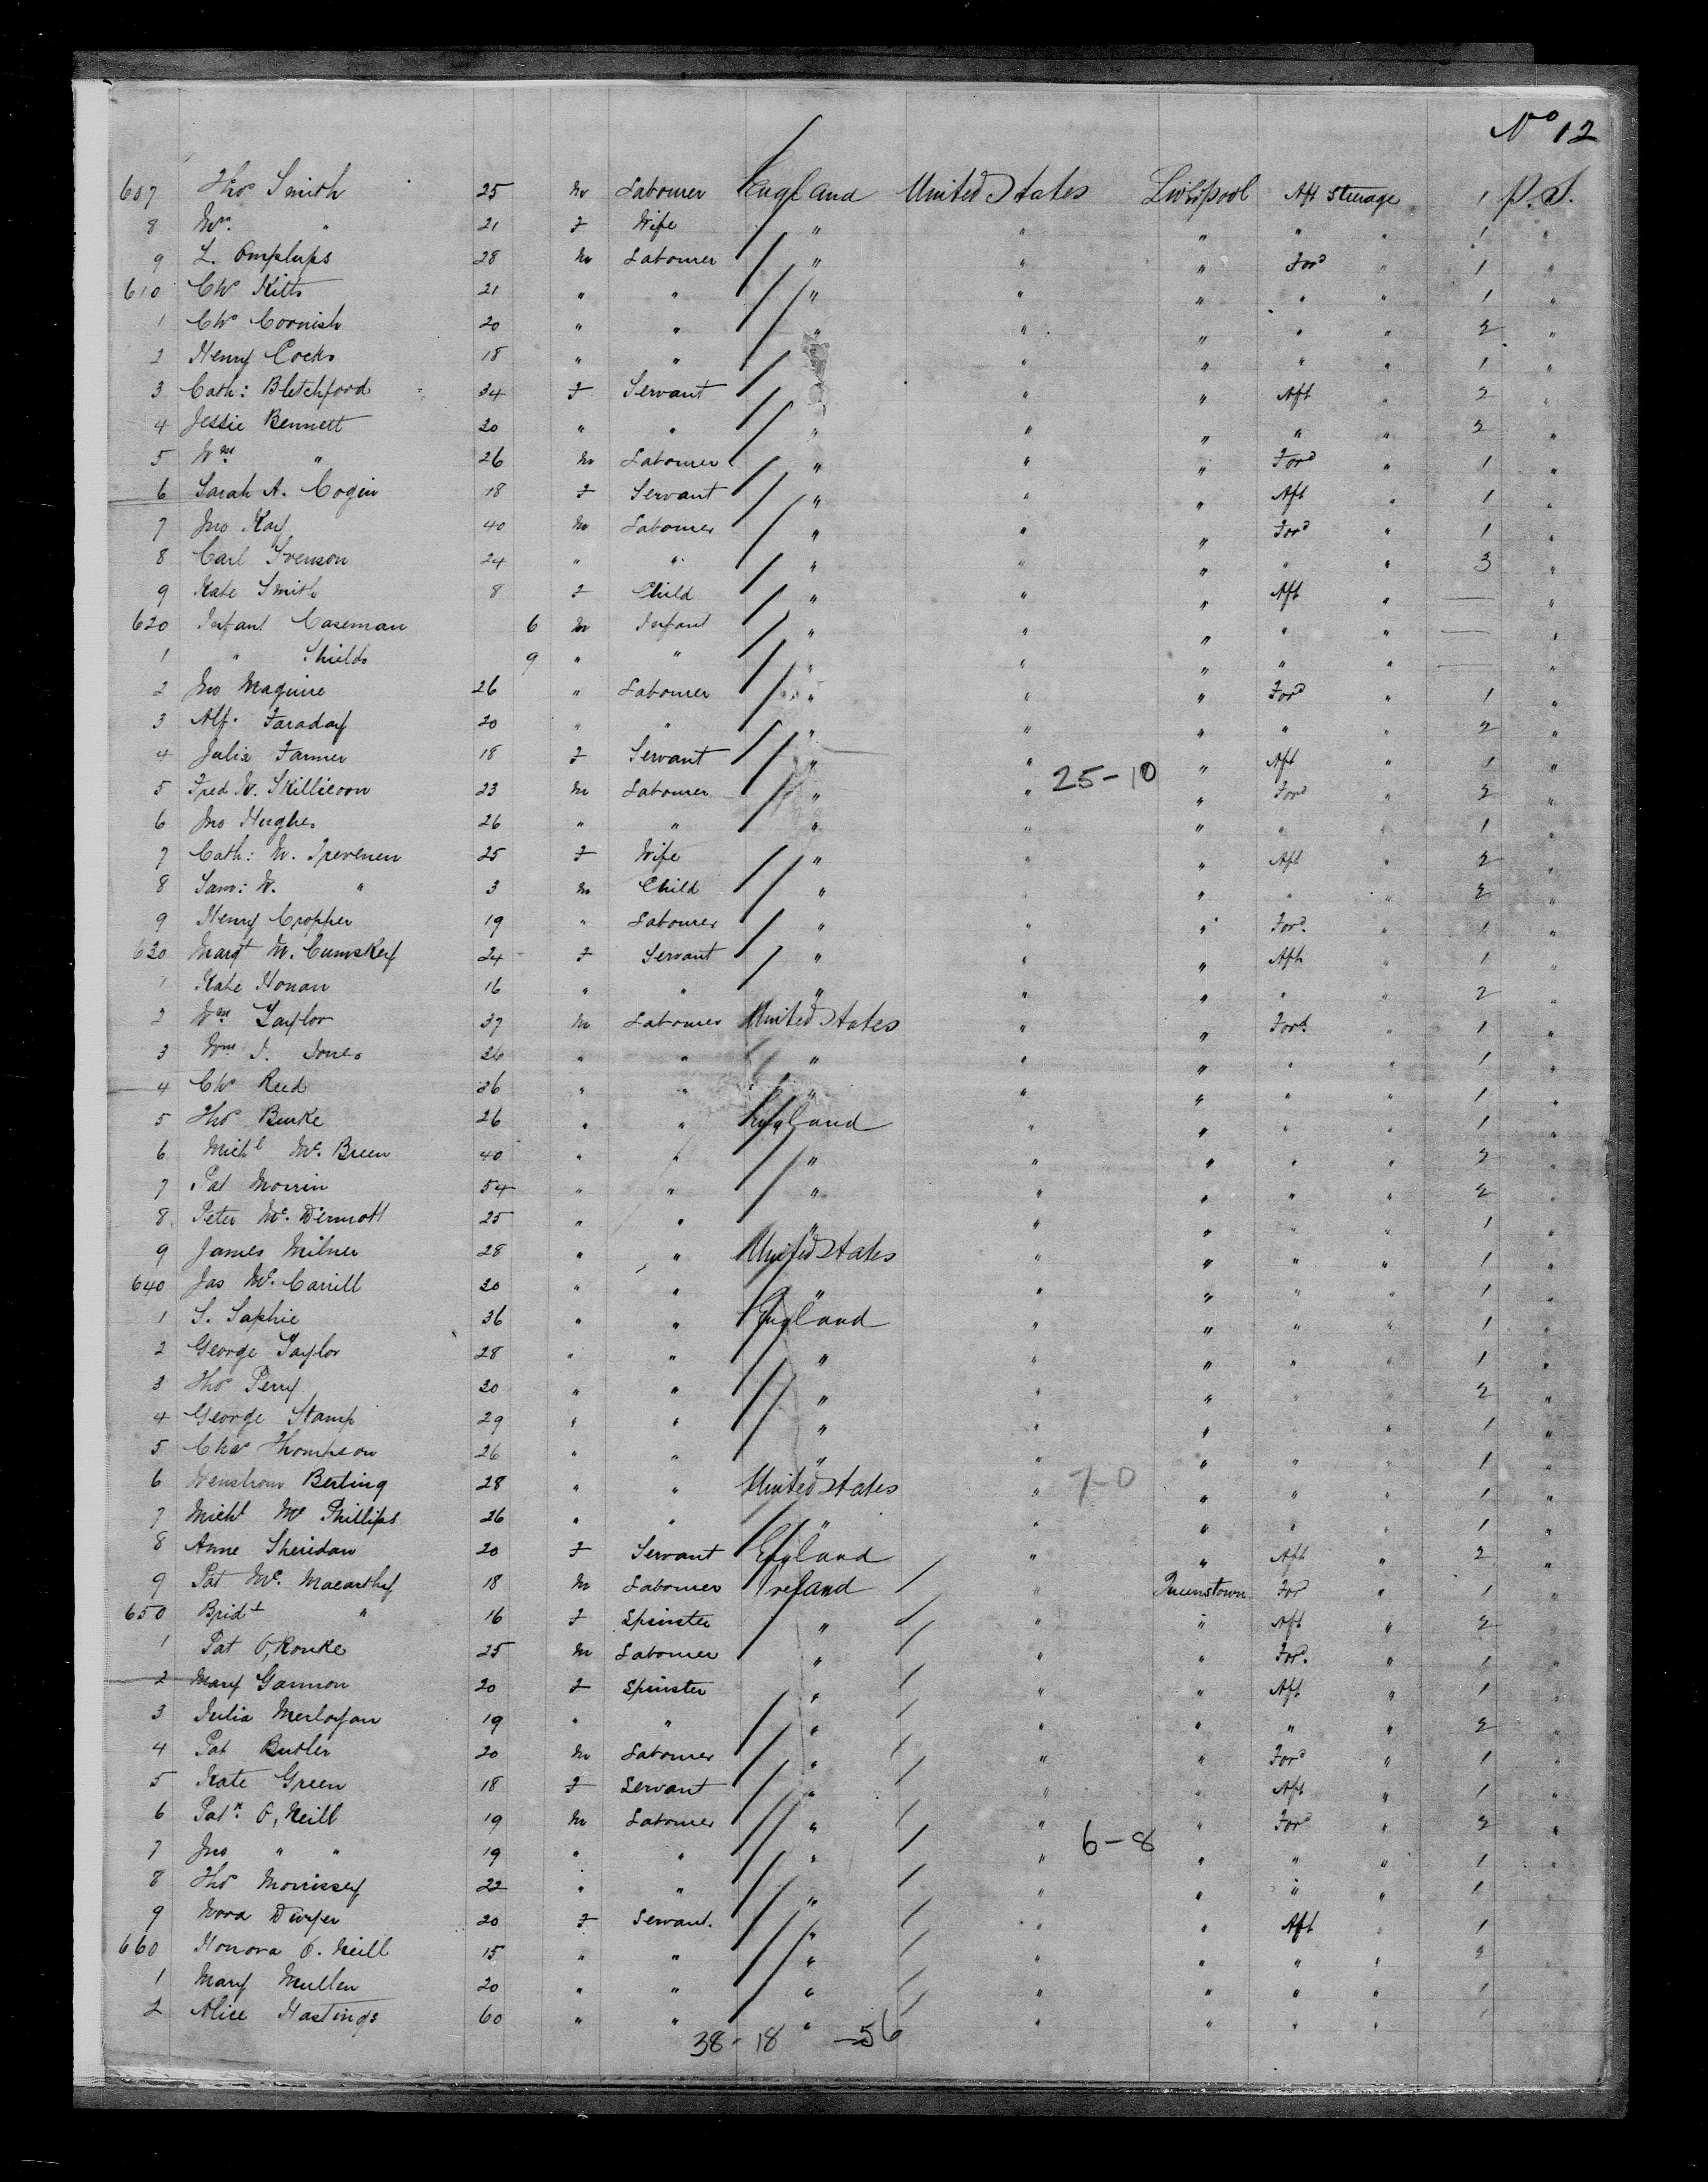 No 12
607 Thos Smith 25 m Labourer England United States Liverpool Aft Steerage 1 P.S.
8 Mrs. " 21 F Wife " " " " " 1 "
9 L. 28 m Labourer " " " Ford " 1 "
610 Chs Kitts 21 " " " " " " " 1 "
1 Chs Cornish 20 " " " " " " " 2 "
2 Henry Cocks 18 " " " " " " 1 "
3 Cath: Bletchford 34 F Servant " " Aft " 2 "
4 Jessie Bennett 20 " " " " " " " 2 "
5 Wm " 26 m Labourer " " " Ford " 1 "
6 Sarah A. Cogin 18 F Servant " " " Aft " 1 "
7 Jno Kay 40 m Labourer " " " Ford " 1 "
8 Carl Svenson 24 " " " " " " " 3 "
9 Kate Smith 8 F Child " " " Aft " — "
620 Infant Caseman 6 m Infant " " " " " — "
1 " Shields 9 " " " " " " " — "
2 Jno Maguire 26 " Labourer " " " Ford " 1 "
3 Alf. Faraday 20 " " " " " " " 2 "
4 Julia Farmer 18 F Servant " " " Aft " 1 "
25-10
5 Fred W. Skillicorn 23 m Labourer " " " Ford " 2 "
6 Jno Hughes 26 " " " " " " " 1 "
7 Cath: M. Trevenen 25 F Wife " " " Aft " 2 "
8 Sam: W. " 3 m Child " " " " " 2 "
9 Henry Cropper 19 " Labourer " " " Ford. " 1 "
630 Margt M. Cumskey 24 F Servant " " " Aft " 1 "
1 Kate Honan 16 " " " " " " " 2 "
2 Wm Taylor 37 m Labourer United States " " Ford. " 1 "
3 Wm J. Jones 26 " " " " " " " 1 "
4 Chs Reed 36 " " " " " " " 1 "
5 Thos Burke 26 " " England " " " " 1 "
6 Michl Mc. Breen 40 " " " " " " " 2 "
7 Pat Morrin 54 " " " " " " " 2 "
8 Peter Mc. Dermott 25 " " " " " " " 1 "
9 James Milner 28 " " United States " " " " 1 "
640 Jas Mc. Carrill 20 " " " " " " " 1 "
1 S. Saphie 36 " " England " " " " 1 "
2 George Taylor 28 " " " " " " " 1 "
3 Thos Perry 30 " " " " " " " 2 "
4 George Stamp 29 " " " " " " " 1 "
5 Chas Thompson 26 " " " " " " " 1 "
7-0
6 Wenstrom Berling 28 " " United States " " " " 1 "
7 Michl Mc Phillips 26 " " " " " " " 1 "
8 Anne Sheridan 20 F Servant England " " Aft " 2 "
9 Pat Mc. Macarthy 18 m Labourer Ireland " Queenstown For " 1 "
650 Bridt " 16 F Spinster " " " Aft " 2 "
1 Pat O,Rourke 25 m Labourer " " " Ford. " 1 "
2 Mary Gannon 20 F Spinster " " " Aft " 1 "
3 Julia 19 " " " " " " " 2 "
4 Pat Butler 20 m Labourer " " " Ford " 1 "
5 Kate Green 18 F Servant " " " Aft " 1 "
6 Patk. O,Neill 19 m Labourer " " " Ford " 2 "
6-8
7 Jno " " 19 " " " " " " " 1 "
8 Thos Morrissey 22 " " " " " " " 1
9 Nora Dwyer 20 F Servant. " " " Aft " 1
660 Honora O. Neill 15 " " " " " " " 2
1 Mary Mullen 20 " " " " " " " 1
2 Alice Hastings 60 " " " " " " "
38-18 -56